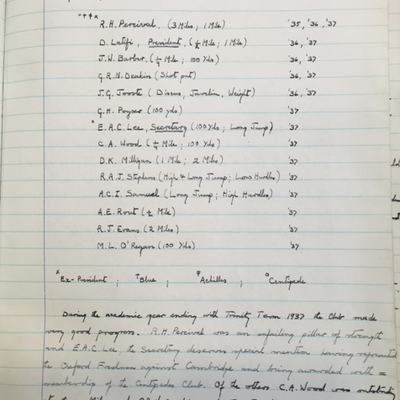 R.H. Percival. (3 Miles; 1 Mile) '35, '36, '37
D. Latifi, President. (½ Mile; 1 Mile) '36, '37
J.W. Barber. (¼ Mile; 100 Yds) '36, '37
G.R.N. Deakin (Shot put) '36, '37
J.G. Jooste (Discus, Javelin, Weight) '36, '37
G.H. Poyser (100 Yds) '37
E.A.C. Lee, Secretary (100 Yds; Long Jump) '37
C.A. Wood (¼ Mile; 100 Yds) '37
D.K. Milligan (1 Mile; 2 Miles) '37
R.A.J. Stephens (High & Long Jump; Low Hurdles) '37
A.C.I. Samuel (Long Jump; High Hurdles) '37
A.E. Rout (½ Mile) '37
R.J. Evans (2 Miles) '37
M.L. O'Regan (100 Yds) '37
x Ex-President; † Blue, Achilles; o Centipede
During the academic year ending with Trinity Term 1937 the Club made
very good progress. R.H. Percival was an unfailing pillar of strength
and E.A.C. Lee, the Secretary deserves special mention having represented
the Oxford Freshmen against Cambridge and being awarded with a
membership of the Centipedes Club. Of the others C.A. Wood was outstanding